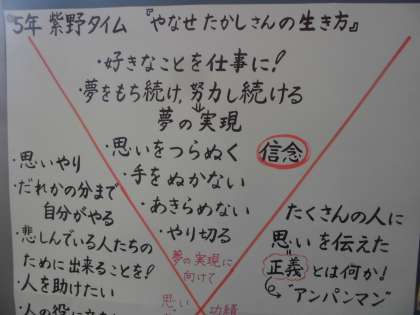 5年 紫野タイム 『やなせ たかしさんの生き方』
・好きなことを仕事に!
・夢をもち続け,努力し続ける
夢の実現
・思いをつらぬく 信念
・手をぬかない
・あきらめない
・やり切る
・思いやり
・だれかの分まで
自分がやる
・悲しんでいる人たちの
ために出来ることを!
・人を助けたい
・人の役に立ち
夢の実現に
向けて
思い
功績
たくさんの人に
思いを伝えた
正義とは何か!
"アンパンマン"